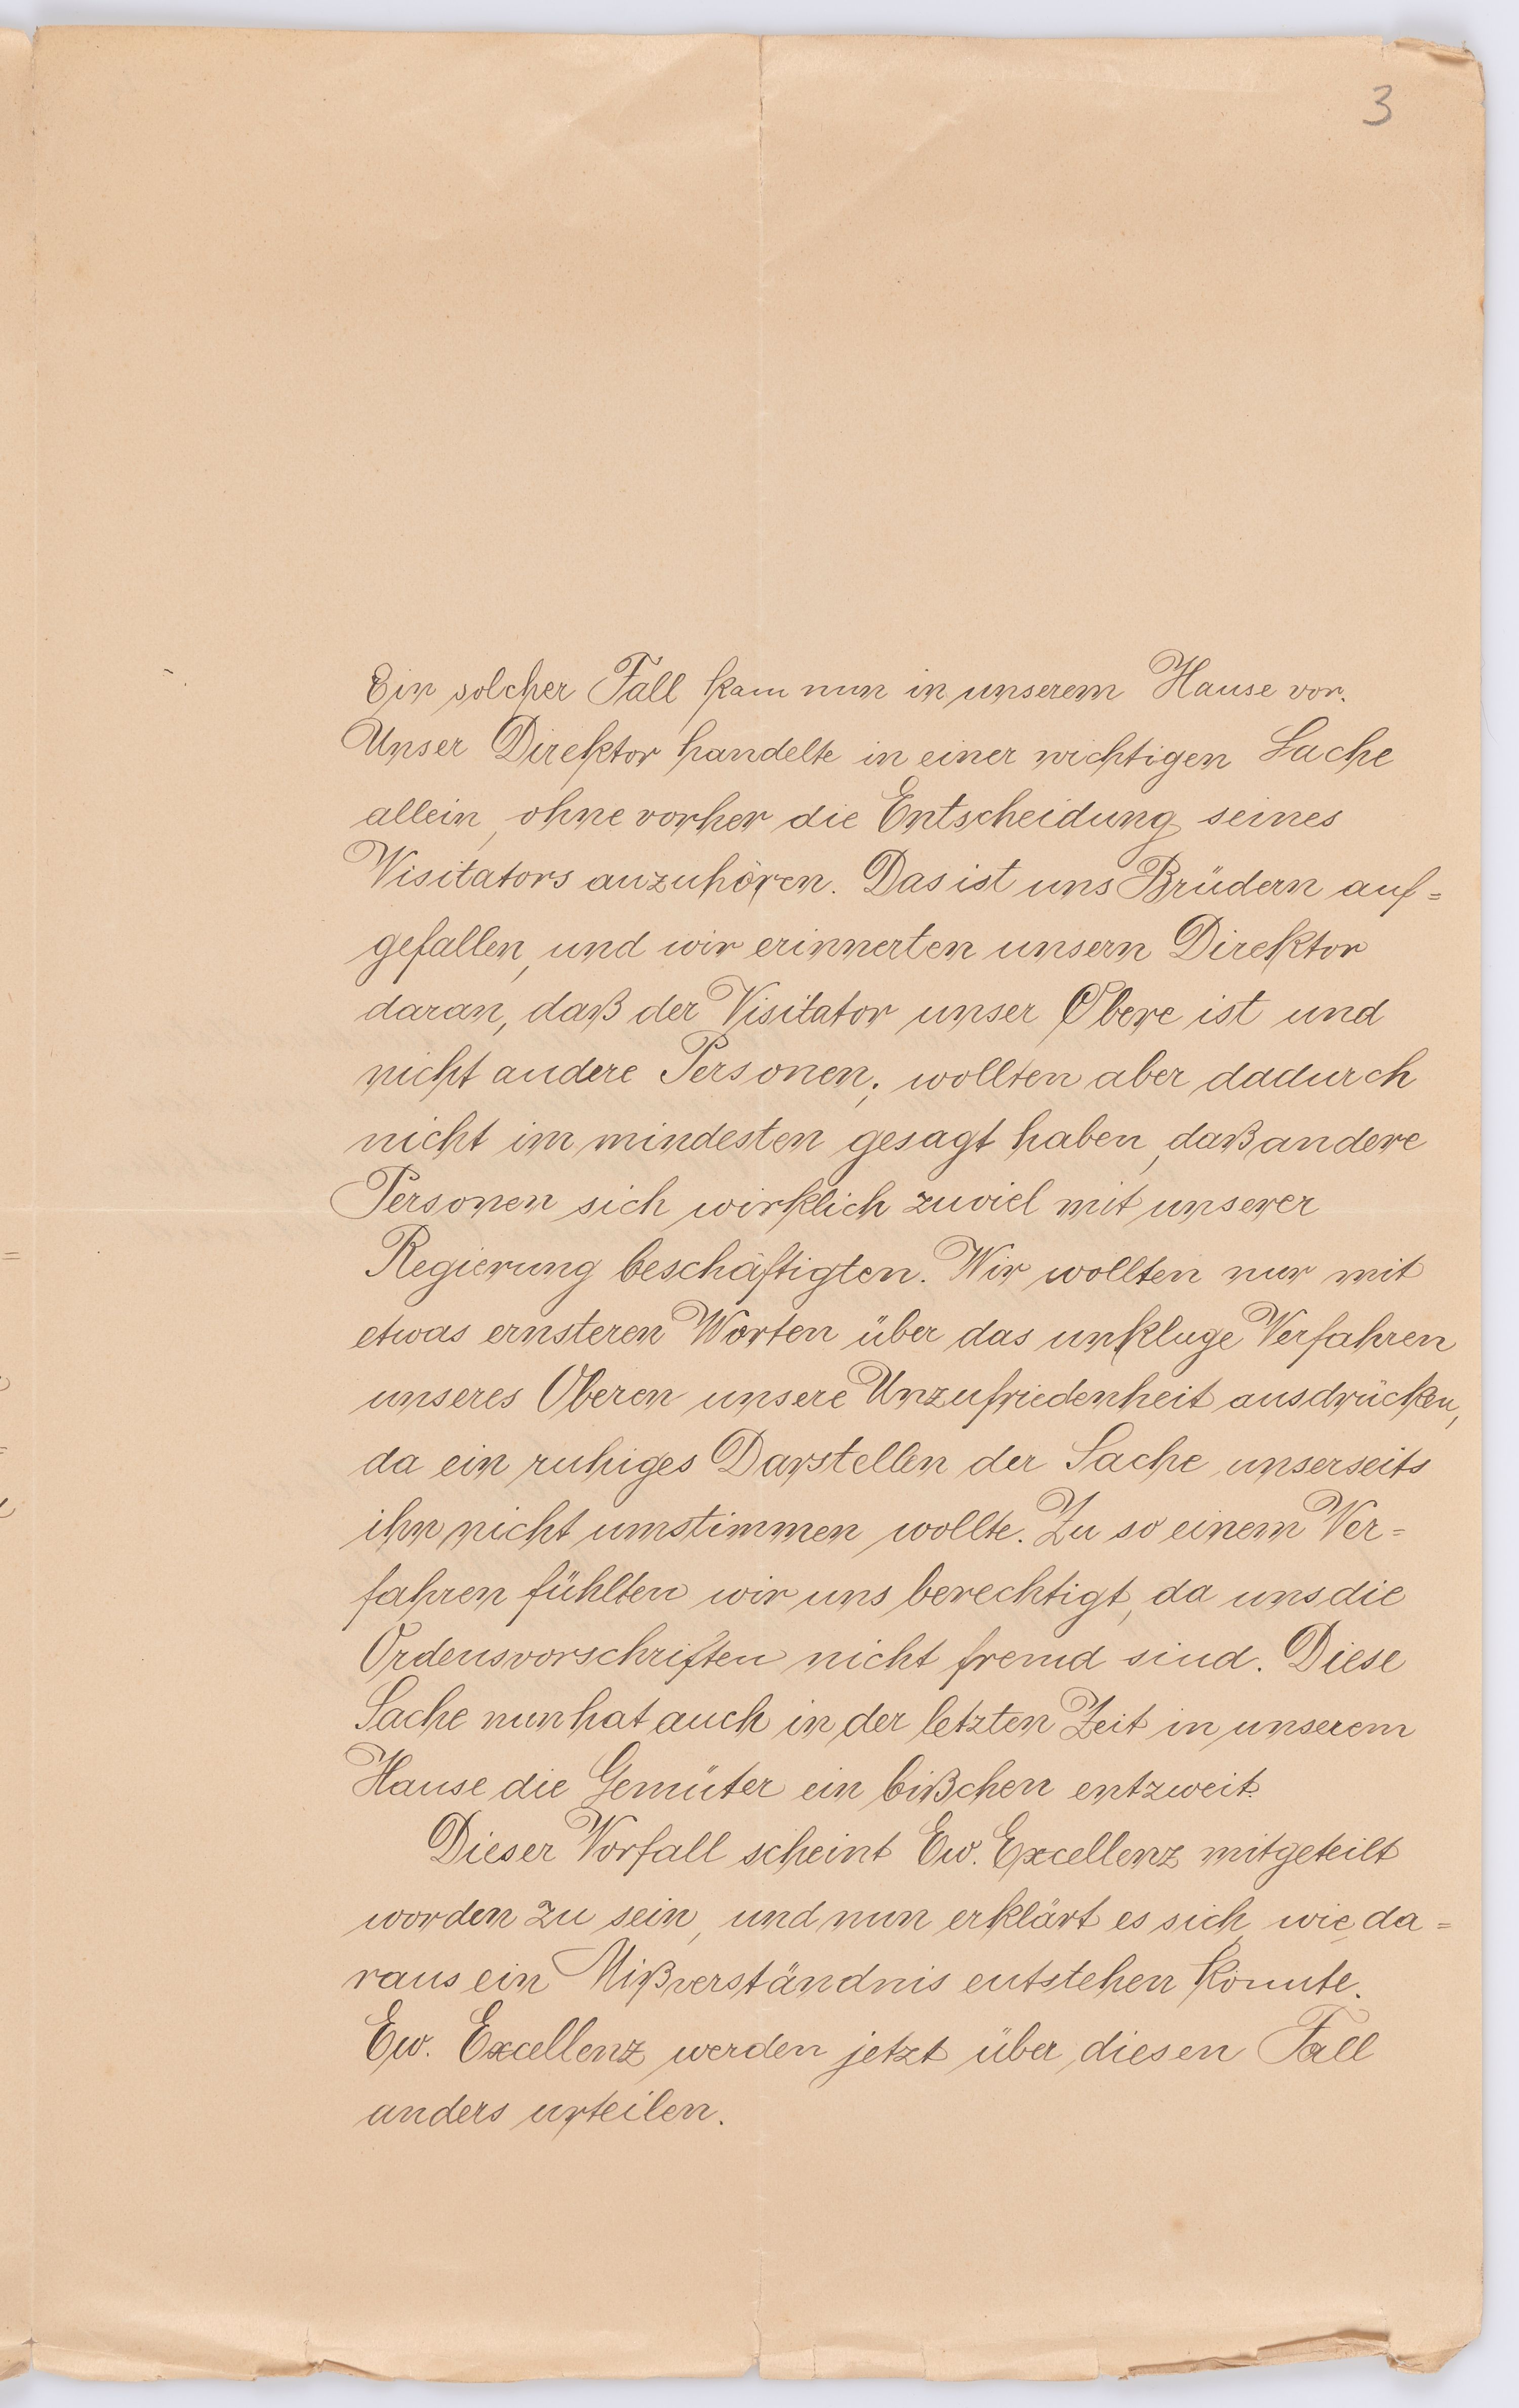 3
Ein solcher Fall kam nun in unserem Hause vor.
Unser Direktor handelte in einer wichtigen Sache
allein, ohne vorher die Entscheidung seines
Visitators anzuhören. Das ist uns Brüdern auf=
gefallen, und wir erinnerten unsern Direktor
daran, daß der Visitator unser Obere ist und
nicht andere Personen; wollten aber dadurch
nicht im mindesten gesagt haben, daß andere
Personen sich wirklich zuviel mit unserer
Regierung beschäftigten. Wir wollten nur mit
etwas ernsteren Worten über das unkluge Verfahren
unseres Oberen unsere Unzufriedenheit ausdrücken,
da ein ruhiges Darstellen der Sache unserseits
ihn nicht umstimmen wollte. Zu so einem Ver=
fahren fühlten wir uns berechtigt, da uns die
Ordensvorschriften nicht fremd sind. Diese
Sache nun hat auch in der letzten Zeit in unserem
Hause die Gemüter ein bißchen entzweit.
Dieser Vorfall scheint Ew. Excellenz mitgeteilt
worden zu sein, und nun erklärt es sich, wie da=
raus ein Mißverständnis entstehen konnte.
Ew. Excellenz werden jetzt über diesen Fall
anders urteilen.